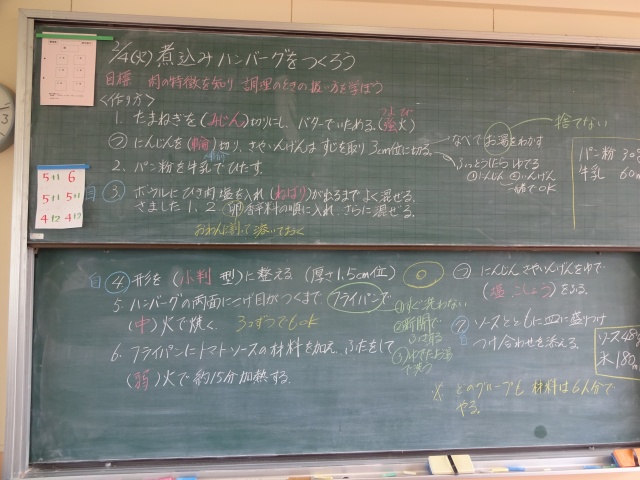 2/4(火) 煮込みハンバーグをつくろう
目標 肉の特徴を知り 調理のときの扱い方を学ぼう
<作り方>
1. たまねぎを(みじん)切りにし、バターでいためる。(強火)
つよび
㋡ にんじんを(輪)切り、さやいんげんは すじを取り 3cm位に切る。
なべでお湯をわかす
捨てない
ふっとうしたらゆでる
一緒でOK
2. パン粉を牛乳でひたす。
③ ボウルにひき肉 塩を入れ(ねばり)が出るまで よく混ぜる。
さました1、2 卵 香辛料の順に入れ、さらに混ぜる。
おわんに割って溶いておく
パン粉 30
牛乳 60
5+1 6
5+1 5+1
4+2 4+2
④ 形を(小判型)に整える (厚さ1.5cm位)
5. ハンバーグの両面にこげ目がつくまで フライパンで
(中)火で焼く。 3つずつでもOK
6. フライパンにトマトソースの材料を加え、ふたをして
(弱)火で 約15分加熱する。
①すぐ洗わない
②新聞で
ふき取る
③ゆでたお湯
で洗う
㋡ にんじん さやいんげんをゆで
(塩 こしょう)をふる。
⑦ ソースとともに皿に盛りつけ
つけ合わせを添える。
ソース 48
水 180
※ どのグループも 材料は6人分で
やる。